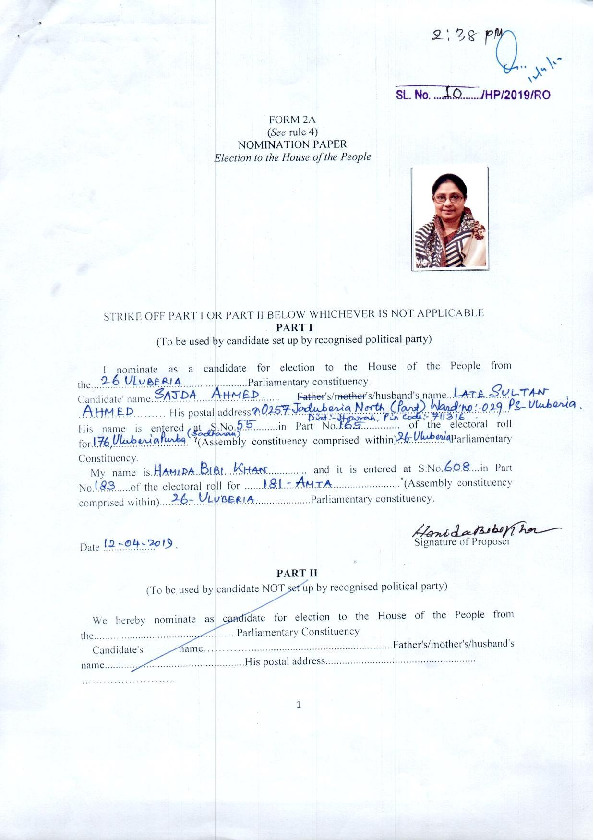 2:38 PM
SL. No. ....10....../HP/2019/RO
FORM 2A
(See rule 4)
NOMINATION PAPER
Election to the House of the People
STRIKE OFF PART I OR PART II BELOW WHICHEVER IS NOT APPLICABLE
PART I
(To be used by candidate set up by recognised political party)
I nominate as a candidate for election to the House of the People from
the...26 ULUBERIA..................Parliamentary constituency
Candidate name. SAJDA AHMED......... Father's/mother's/husband's name. LATE SULTAN
AHMED......... His postal address 0257 Joduberia North (Part) Ward no: 029 PS-Uluberia.
Dist- Howrah, Code- 711316
His name is entered at S.No. 55.......in Part No. 165......... of the electoral roll
for 176, Uluberia Purba *(Assembly constituency comprised within) 26 Uluberia Parliamentary
Constituency.
My name is HAMIDA BIBI KHAN.......... and it is entered at S.No. 608...in Part
No. 183....of the electoral roll for ......181-AMTA..............*(Assembly constituency
comprised within)....26-ULUBERIA...............Parliamentary constituency.
Date 12-04-2019.
Signature of Proposer
PART II
(To be used by candidate NOT set up by recognised political party)
We hereby nominate as candidate for election to the House of the People from
the......................................Parliamentary Constituency
Candidate's name..................................................Father's/mother's/husband's
name.....................................His postal address.........................................
.........................
1